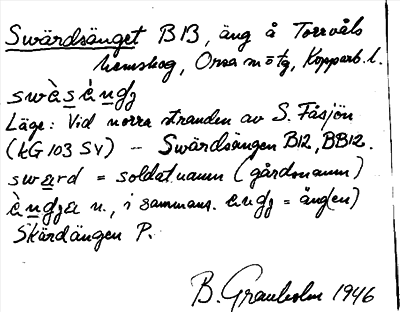 Swärdsänget B 13, äng å Torrvåls
hemskog, Orsa m o tg, Kopparb. l.
swàsèngɟ
Läge: Vid norra stranden av S. Fåsjön
(KG 103 SV) – Swärdsängen B12, BB12.
sward = soldatnamn (gårdsnamn)
èngɟa n., i sammans. engɟ = äng(en)
Skärdängen P.
B. Granholm 1946